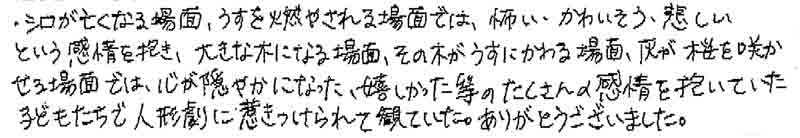 ・シロが亡くなる場面、うすを燃やされる場面では、怖い・かわいそう、悲しい
という感情を抱き、大きな木になる場面、その木がうすにかわる場面、灰が桜を咲か
せる場面では、心が穏やかになった、嬉しかった等のたくさんの感情を抱いていた
子どもたちで人形劇に惹きつけられて観ていた。ありがとうございました。